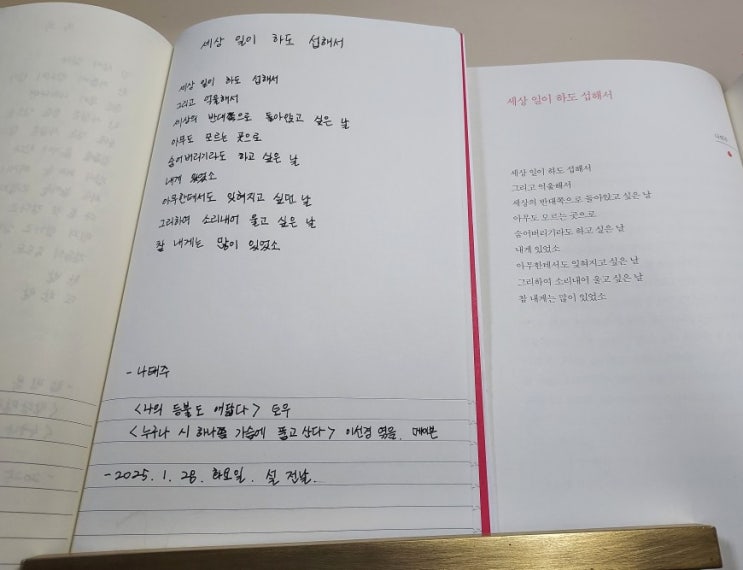 세상 일이 하도 섭해서
세상 일이 하도 섭해서
그리고 억울해서
세상의 반대쪽으로 돌아앉고 싶은 날
아무도 모르는 곳으로
숨어버리기라도 하고 싶은 날
내게 있었소
아무한테서도 잊혀지고 싶던 날
그리하여 소리내어 울고 싶은 날
참 내게는 많이 있었소
- 나태주
<나의 등불도 애닯다> 토우
<누구나 시 하나쯤 가슴에 품고 산다> 이선경 엮음. 메이븐
- 2025. 1. 28. 화요일. 설 전날.
세상 일이 하도 섭해서
나태주
세상 일이 하도 섭해서
그리고 억울해서
세상의 반대쪽으로 돌아앉고 싶은 날
아무도 모르는 곳으로
숨어버리기라도 하고 싶은 날
내게 있었소
아무한테서도 잊혀지고 싶은 날
그리하여 소리내어 울고 싶은 날
참 내게는 많이 있었소